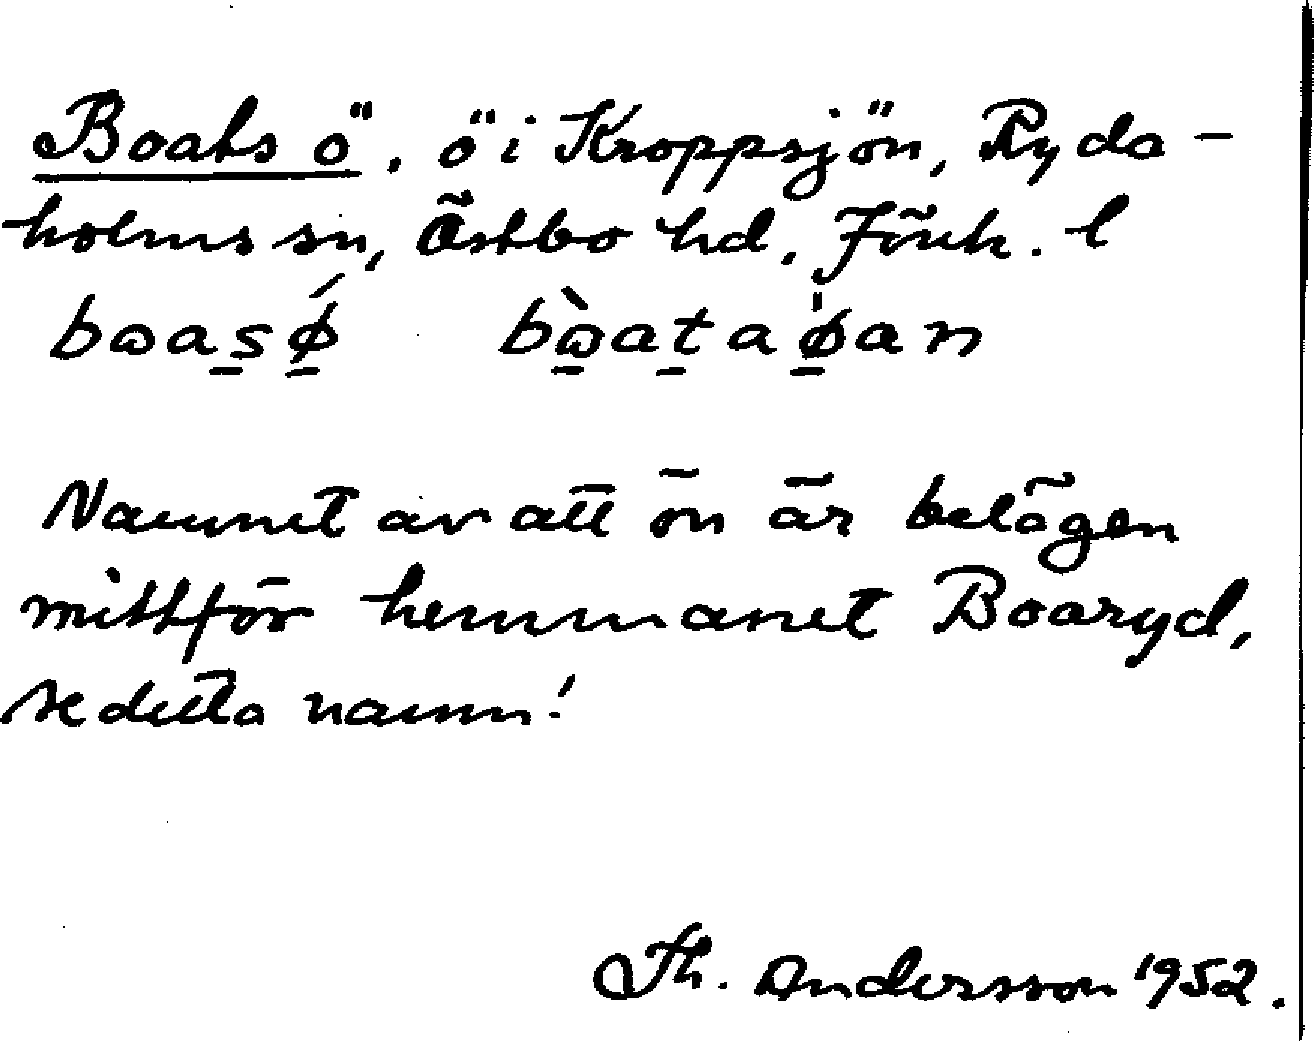 Boats ö, ö i Kroppsjön, Ryda-
holms sn, Östbo hd. Jönk. l
Namnet av att ön är belägen
mittför hemmanet Boaryd,
se detta namn!
Th. Andersson 1952.